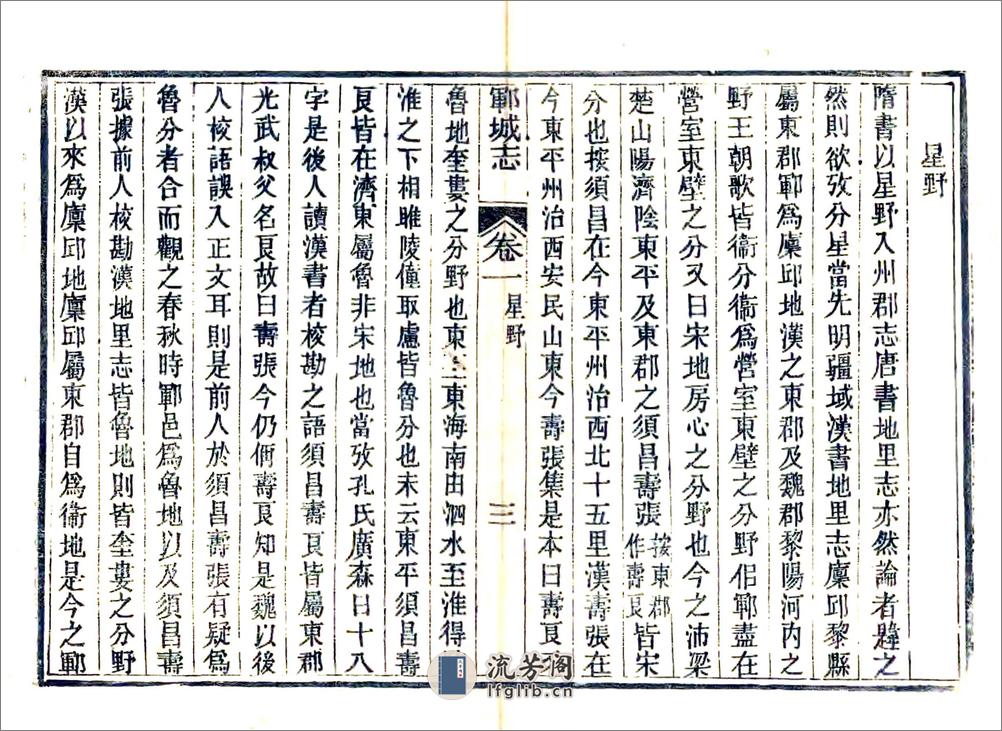 星野
隋書以星野入州郡志唐書地里志亦然論者韙之
然則欲攷分星當先明疆域漢書地里志廪邱黎縣
屬東郡鄆為廪邱地漢之東郡及魏郡黎陽河內之
野王朝歌皆衞分衞為營室東壁之分野但鄆盡在
營室東壁之分又曰宋地房心之分野也今之沛梁
楚山陽濟陰東平及東郡之須昌壽張按東郡作壽良皆宋
分也按須昌在今東平州治西北十五里漢壽張在
今東平州治西安民山東今壽張集是本曰壽良
鄆城志 卷一 星野 三
魯地奎婁之分野也東至東海南由泗水至淮得
淮之下相睢陵僮取慮皆魯分也末云東平須昌壽
良皆在濟東屬魯非宋地也當攷孔氏廣森曰十八
字是後人讀漢書者校勘之語須昌壽良皆屬東郡
光武叔父名良故曰壽張今仍偁壽良知是魏以後
人校語誤入正文耳則是前人於須昌壽張有疑為
魯分者合而觀之春秋時鄆邑為魯地以及須昌壽
張據前人校勘漢地里志皆魯地則皆奎婁之分野
漢以來為廪邱地廪邱屬東郡自為衞地是今之鄆
流芳阁
lfglib.cn